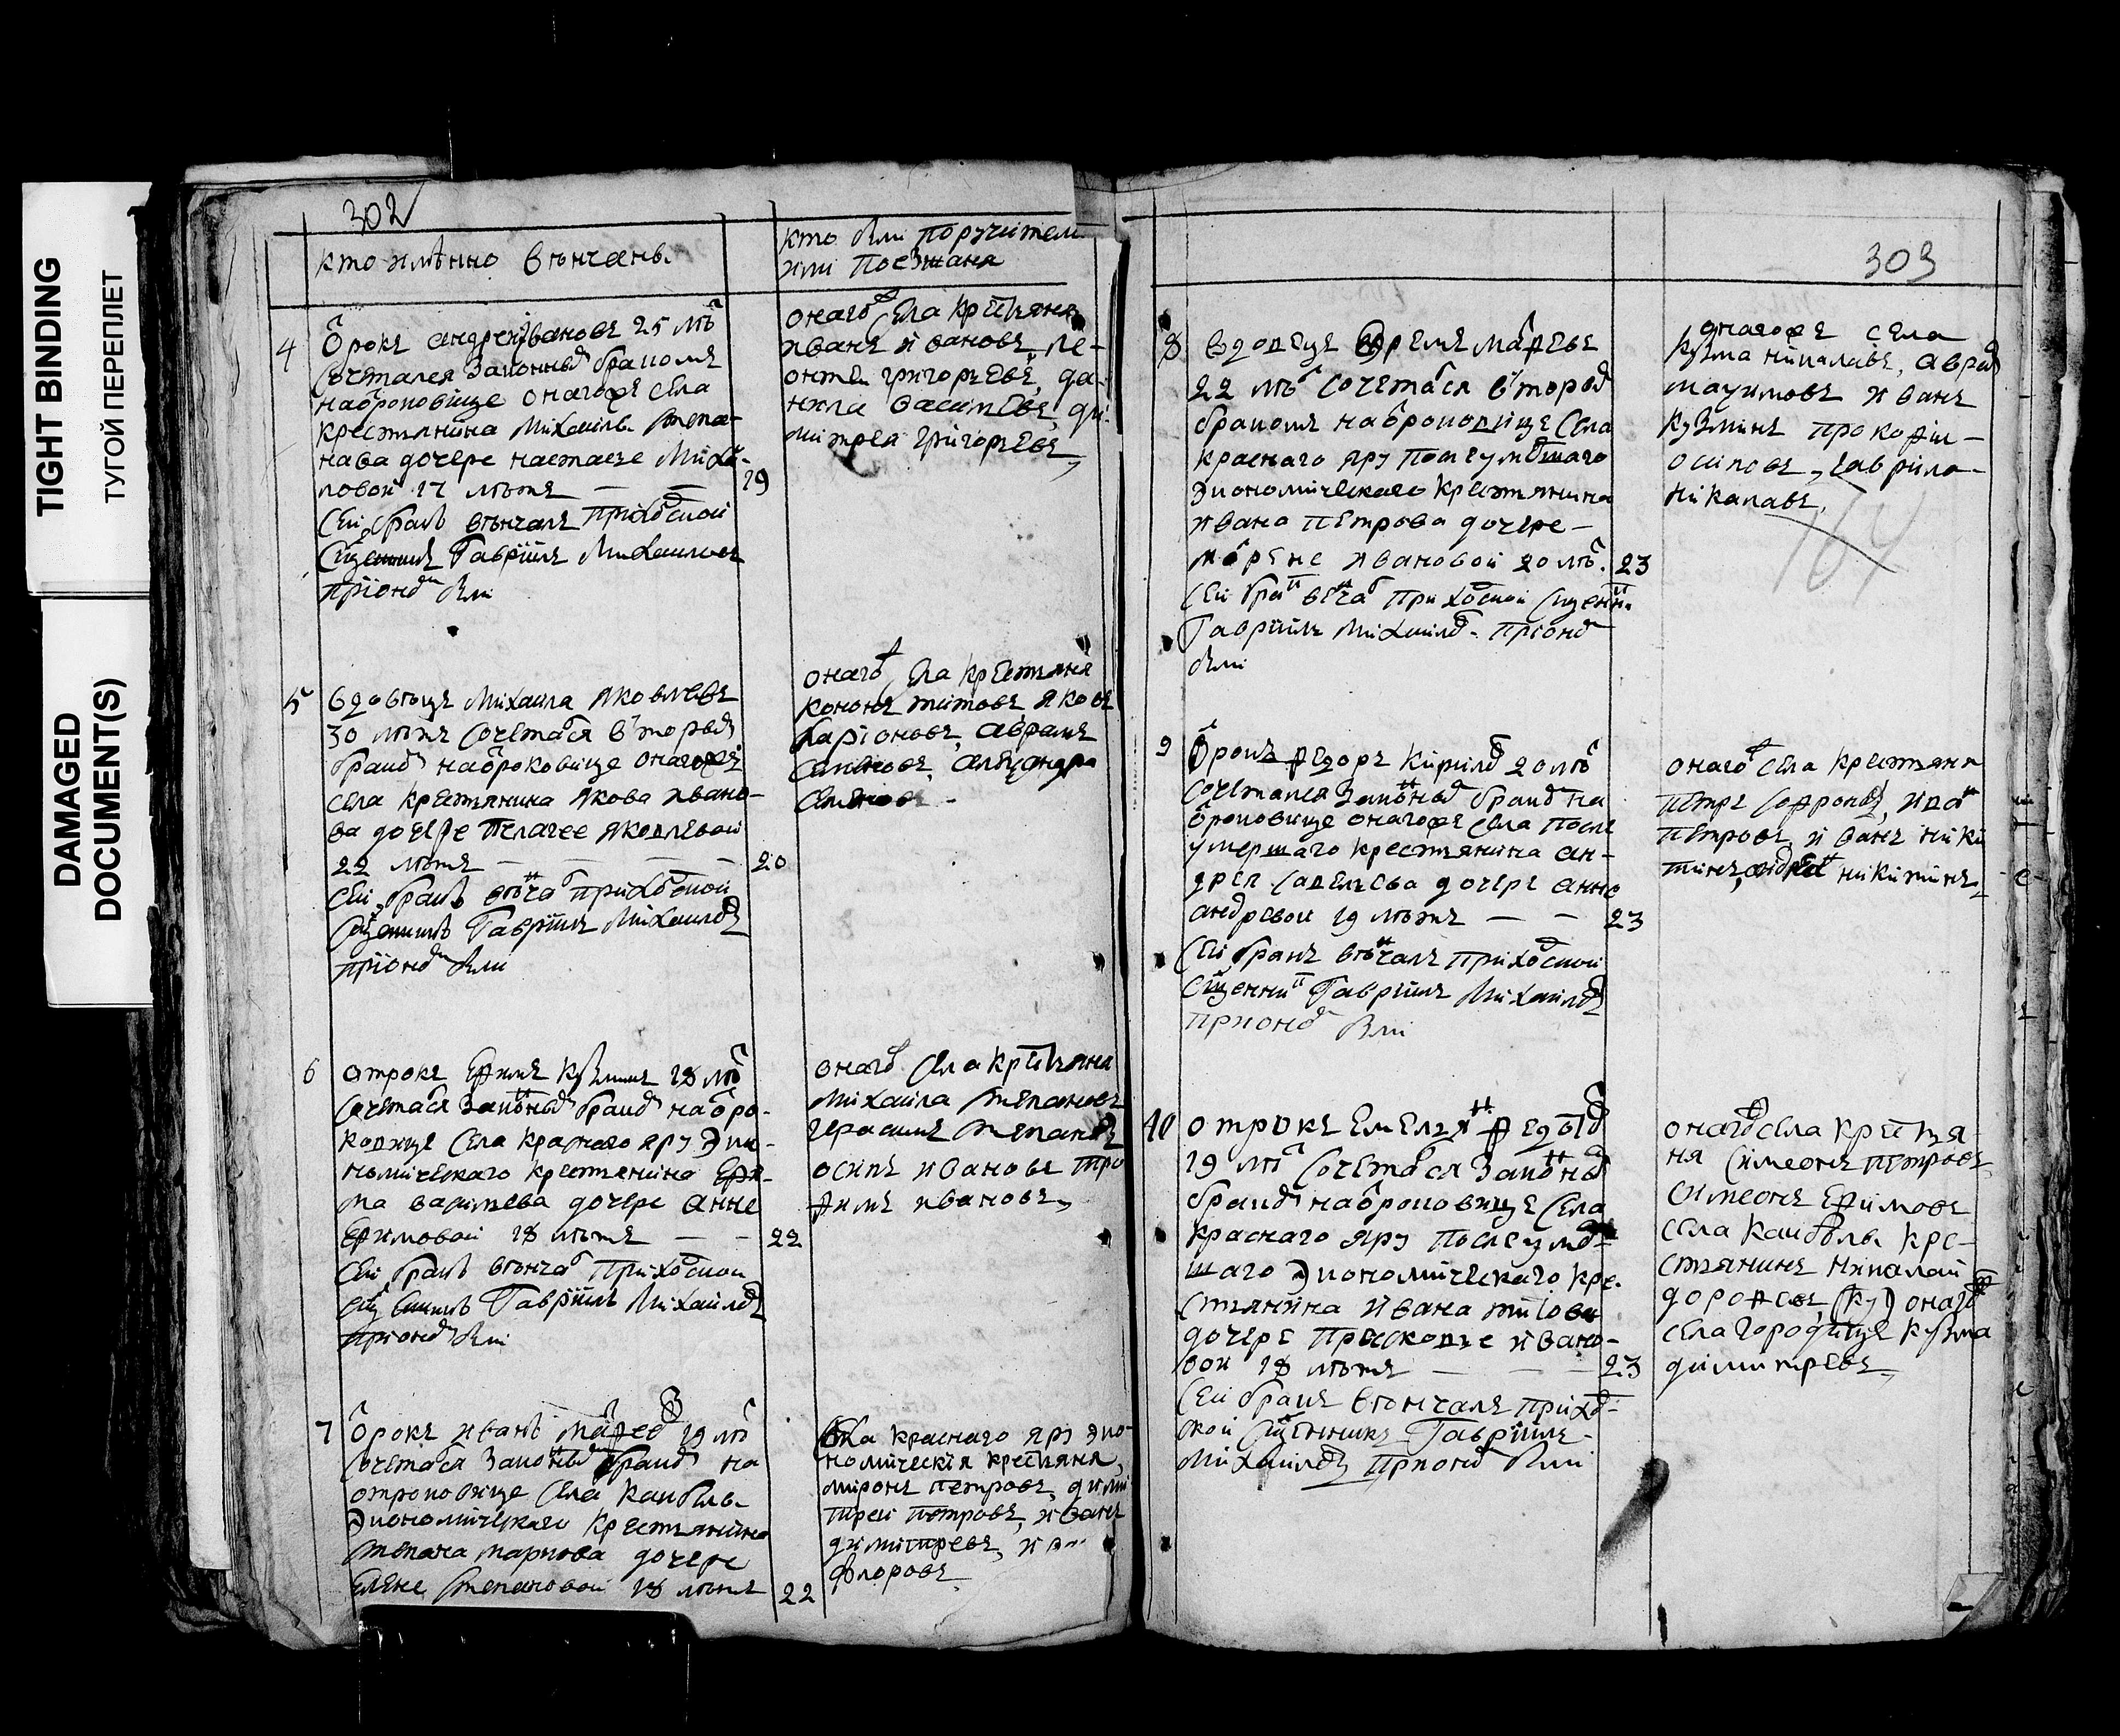 TIGHT BINDING
ТУГОЙ ПЕРЕПЛЕТ
DAMAGED
DOCUMENT(S)
302
кто имѣнно вѣнчаны
кто были поручители
или поезжаня
4 Ѻрокъ андреи Ивановъ 25 лѣ
сочетался законны бракомъ
наѻроковице онагоже села
крестьянина Михаила степа-
нава дочере настасье Миха-
ловои 17 лѣтъ — — 19
Сеи бракъ вѣнчалъ приходской
Сщенникъ Гаврїилъ Михаиловъ
при оно были
онаго села крестьяня
иванъ ивановъ, ле-
онтеи григорьевъ, да-
нила васильевъ, ди-
митреи григорьевъ
5 вдовецъ Михаила Яковлевъ
30 лѣтъ сочетася вторы
брако наѻроковице онагоже
села крестьянина Якова ивано-
ва дочере пелагее Яковлевои
22 лѣтъ — — — — 20
Сеи бракъ вѣнча приходской
Сщенникъ Гаврїилъ Михаило
при оно были
онаго села крестьяня
кононъ титовъ яковъ
ларіоновъ, аврамъ
6 отрокъ Ефимъ Кузминъ 18 лѣ
Сочетася законны брако наѻро-
ковице села краснаго яру эко-
номическаго крестьянина Ефи-
ма васильева дочере анне
Ефимовои 18 лѣтъ — — 22
Сеи бракъ вѣнча приходской
сщенникъ Гаврїилъ Михаило
при оно были
онаго села крестьяня
Михаила степановъ
герасимъ степановъ
осипъ ивановъ тро
фимъ ивановъ
7 Ѻрокъ иванъ мафее 19 лѣ
сочетася законны брако на
отроковице села каибелы
экономическаго крестьянина
степана маркова дочере
елене степановои 18 лѣтъ 22
села краснаго яру эко-
номическія крестьяня,
миронъ петровъ, дими
треи петровъ, иванъ
димитревъ, ива
флоровъ
303
8 вдовецъ Ефремъ мафевъ
22 лѣ сочетася вторы
бракомъ наѻроковице села
краснаго яру после умершаго
экономическаго крестьянина
ивана петрова дочере —
ивановои 20 лѣ. 23
Сеи бра веча приходской сщенн
Гаврїилъ Михаило при оно
были
онагоже села
Кузма никалавъ, аврам
иванъ
Кузминъ прокофи —
осиповъ, гаврила
никалавъ
164
9 Ѻрокъ федоръ Кирило 20 лѣ
сочетался законны брако на
ѻроковице онагоже села после
умершаго крестьянина ан-
дрея савельева дочере анне
андревои 19 лѣтъ — — 23
Сеи бракъ вѣчалъ приходской
Сщенни Гаврїилъ Михаило
при оно были
онаго села крестьяня
петръ софроно, ива
петровъ, иванъ ники
тинъ, андреи никитинъ
10 отрокъ Емельян федото
19 лѣ сочетася законны
брако наѻроковице села
краснаго яру после уме-
шаго экономическаго кре-
стьянина ивана титова
дочере прасковье ивано-
вои 18 лѣтъ — — 23
Сеи бракъ вѣнчалъ прихо-
ской Сщенникъ Гаврїилъ
Михаило при оно были
онаго села крестья
ня симеонъ петровъ
симеонъ Ефимовъ
села каибелы кре-
стьянинъ николаи
дорофевъ онаго
села городище кузма
димитревъ